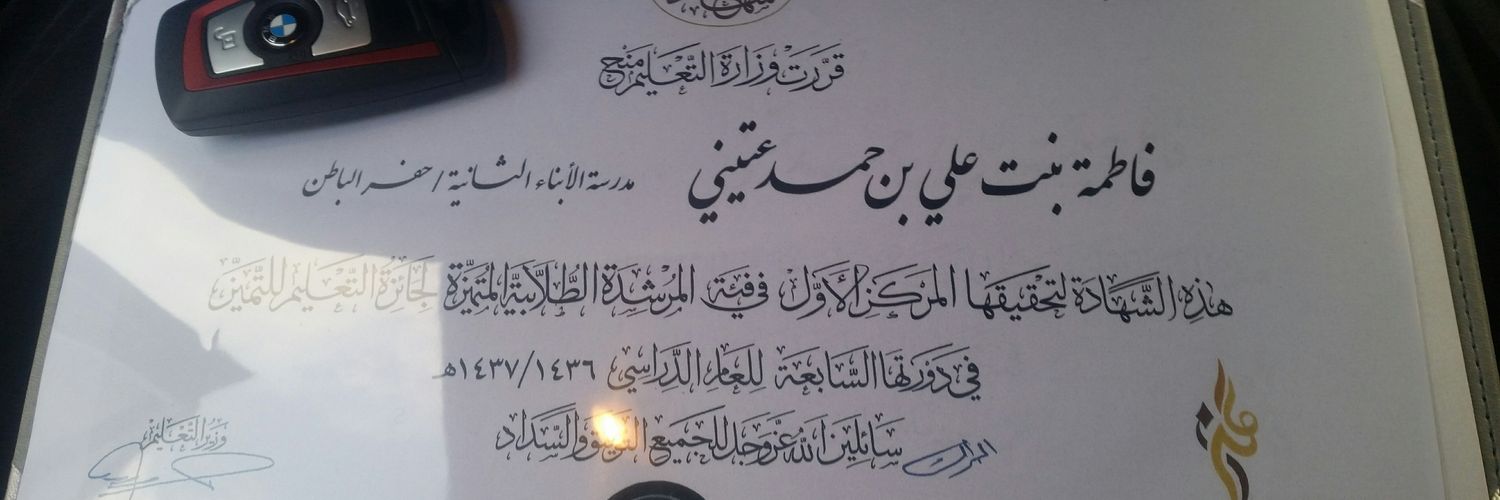 قررت وزارة التعليم منح
فاطمة بنت علي بن حمد عتيني مدرسة الأبناء الثانية / حفر الباطن
هذه الشهادة لتحقيقها المركز الأول في فئة المرشدة الطلابية المتميزة لجائزة التعليم للتميز
في دورتها السابعة للعام الدراسي ١٤٣٧/١٤٣٦هـ
سائلين الله عز وجل للجميع التوفيق والسداد
وزير التعليم